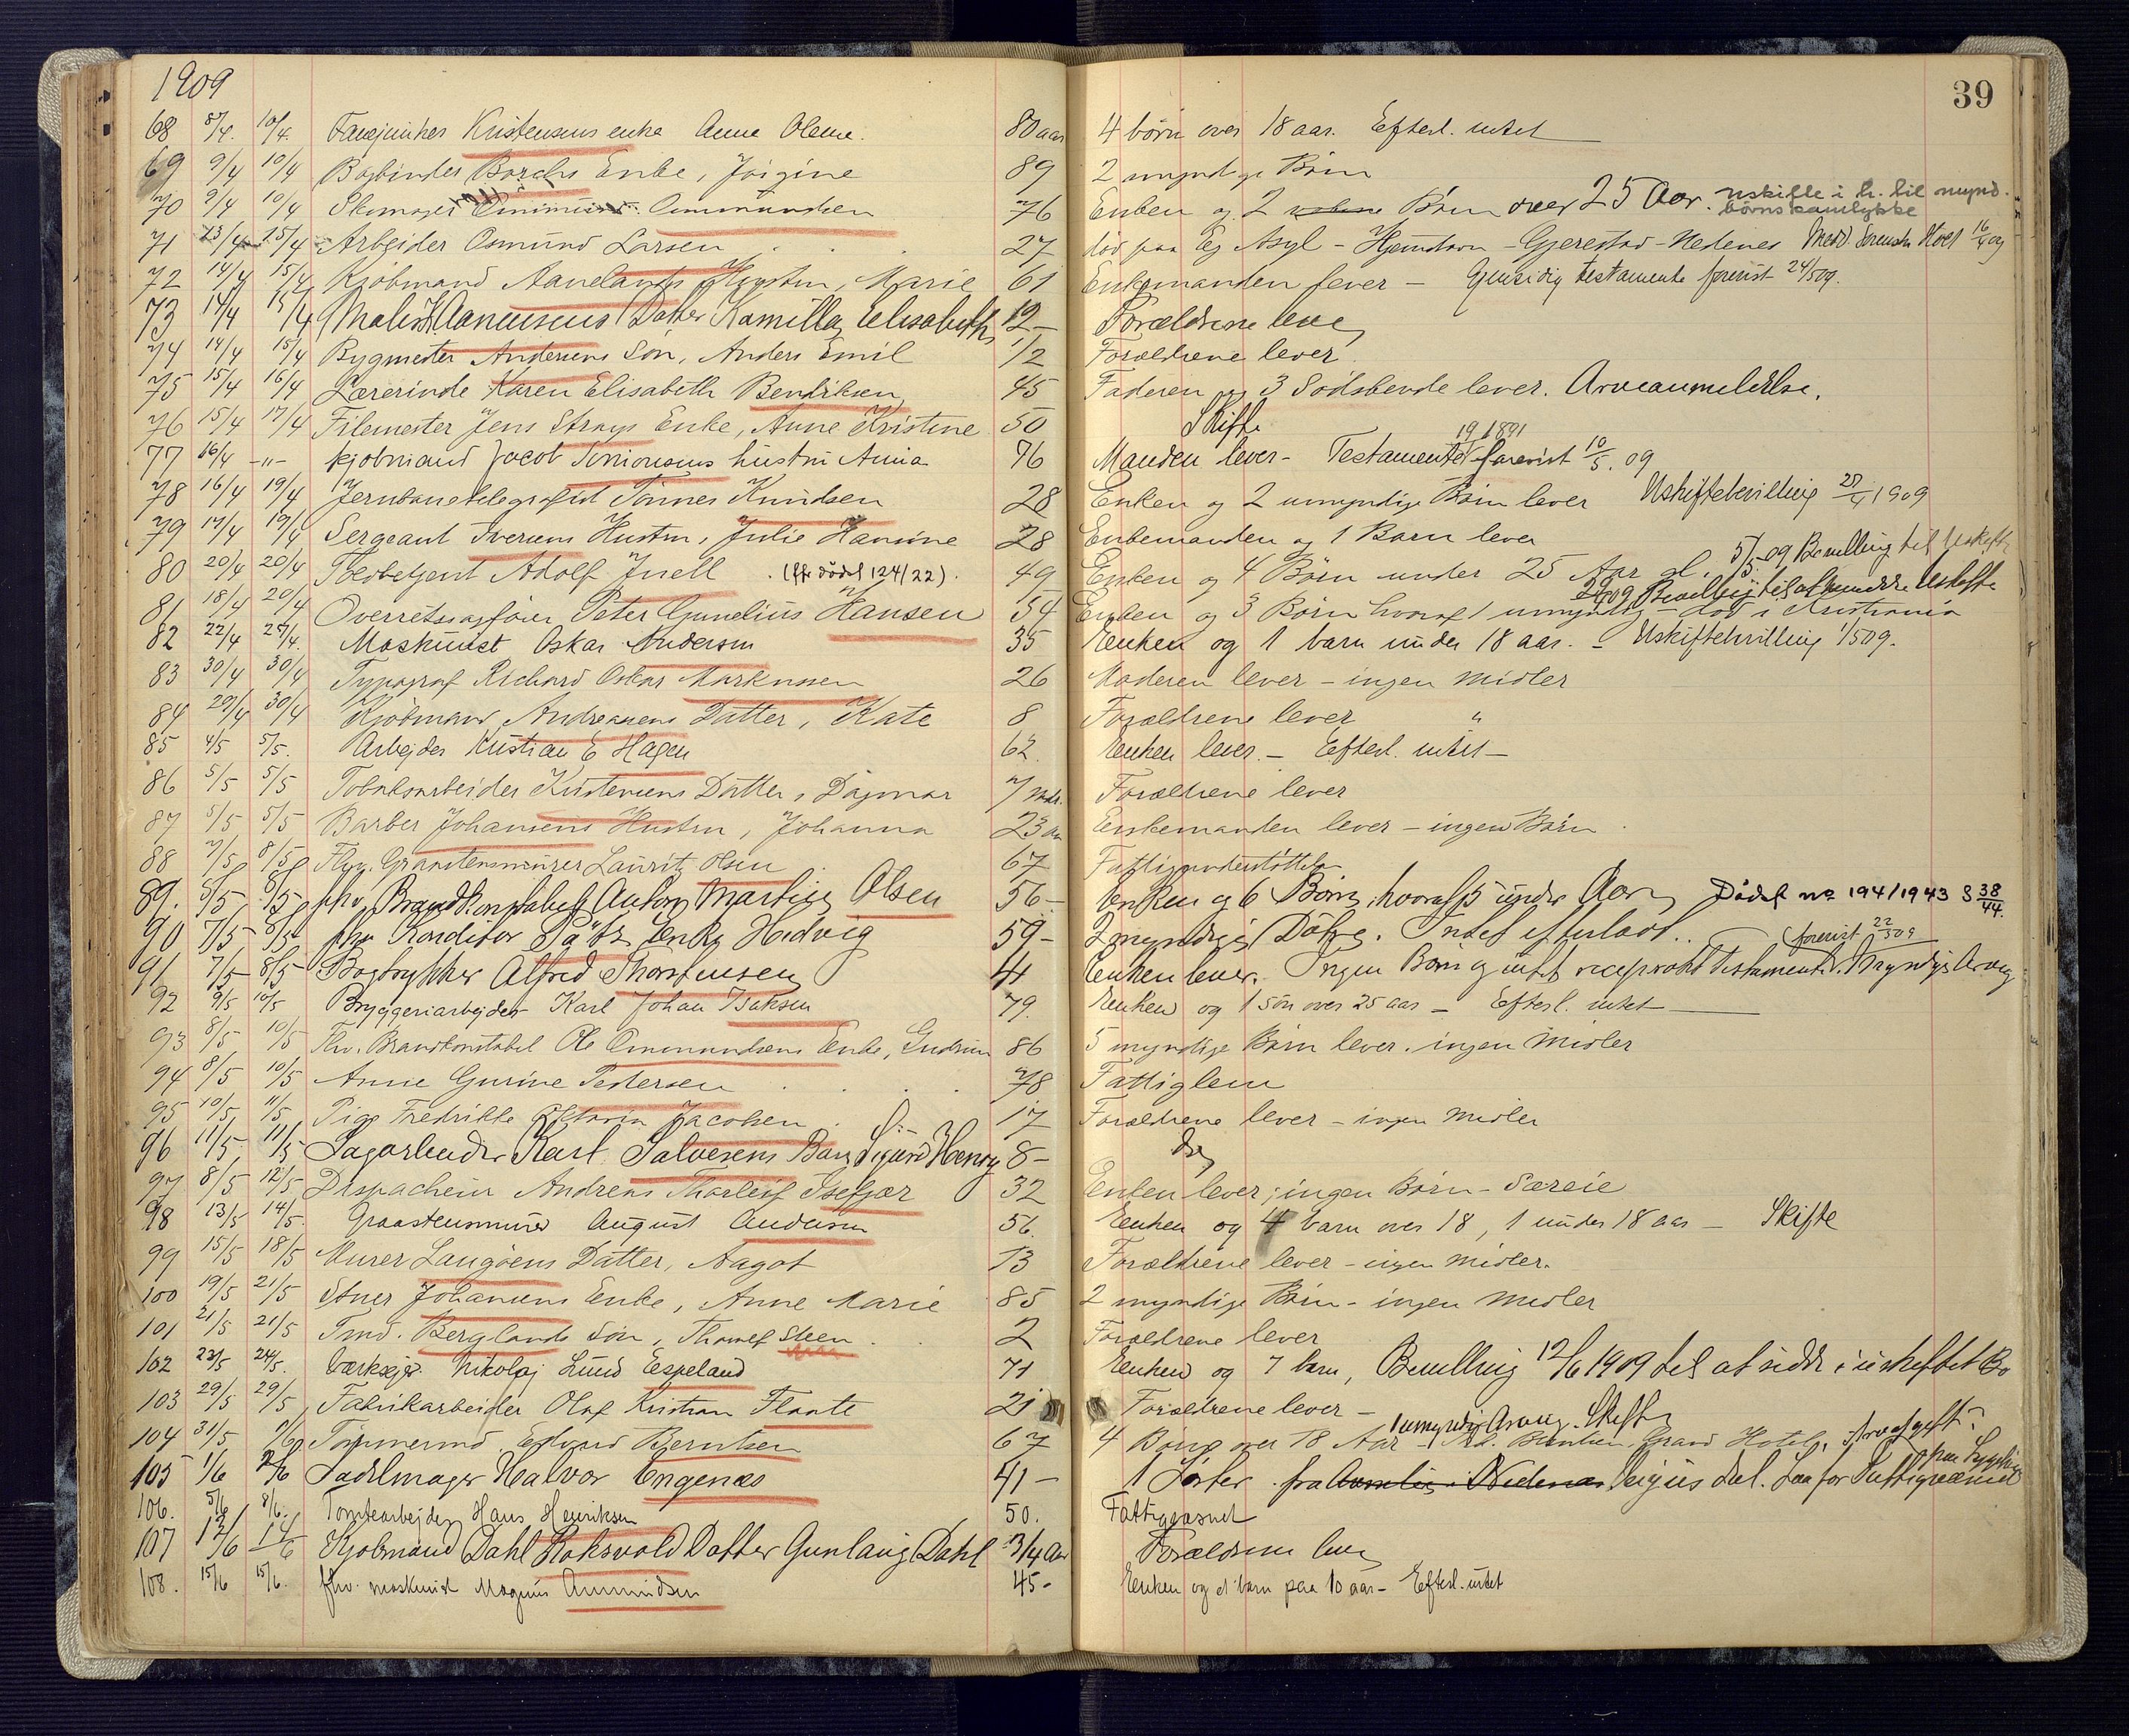 1909
39
68 8/4. 10/4. Fanejunker Kristensens enke Anne Olene. 80 aar 4 börn over 18 aar. Efterl. intet
69 9/4 10/4 Bogbinder Borchs Enke, Jörgine 89 2 myndige Börn
70 9/4 10/4 Skomager Ommundsen 76 Enken og 2 Börn over 25 Aar. uskifte i h. til mynd. börns samtykke
71 13/4 15/4 Arbeider Osmund Larsen 27 död paa Eg Asyl - Hjemstavn - Gjerestad - Nedenes Medd. Sorenskr
72 14/4 15/4 Kjöbmand Aanelands Hustru, Marie 61 Enkemanden lever - Gjensidig testamente forevist 24/509.
73 14/4 15/4 Maler Datter Kamilla Elisabeth 12 - Forældrene lever
74 14/4 15/4 Bygmester Andersens Sön, Anders Emil 1/2 Forældrene lever
75 15/4 16/4 Lærerinde Karen Elisabeth Bendiksen 45 Faderen og 3 Södskende lever. Arveanmeldelse.
76 15/4 17/4 Filemester Jens Strays Enke, Anne Kristine 50 Skifte
77 16/4 -"- kjöbmand Jacob Simonsens hustru Anna 76 Manden lever - Testamente forevist 10/5. 09
78 16/4 19/4 Jernbanetelegrafist Tönnes Knudsen 28 Enken og 2 umyndige Börn lever Uskiftebevilling 27/4 1909
79 17/4 19/4 Sergeant Iversens Hustru, Julie Hansine 28 Enkemanden og 1 Barn lever
80 20/4 20/4 Toldbetjent Adolf Juell . (Efr dödsf 124/22). 49 Enken og 4 Börn under 25 Aar gl. 5/5-09 Bevilling til Uskifte
81 18/4 20/4 Overretssagförer Peter Gunelius Hansen 54 Enken og 3 Börn hvoraf 1 umyndig - död i Kristiania
82 22/4 25/4. Maskinist Oskar Andersen 35 Enken og 1 barn under 18 aar. - Uskiftebevilling 1/509.
83 30/4 30/4 Typograf Richard Oskar Markussen 26 Moderen lever - ingen midler
84 29/4 30/4 Kjöbmand Andreasens Datter, Kate 8 Forældrene lever "
85 4/5 5/5. Arbejder Kristian E Hagen 62. Enken lever. - Efterl. intet -
86 5/5 5/5 Tobaksarbeider Kristensens Datter, Dagmar 7 Mdr. Forældrene lever
87 5/5 5/5 Barber Johansens Hustru, Johanna 23 aar Enkemanden lever - ingen Börn
88 7/5 8/5 Fhv. Graastensmurer Lauritz Olsen 67 Fattigunderstöttelse
89. 5/5 8/5 fhv. Brandkonstabel Anton Martin Olsen 56 - Enken og 6 Börn, hvoraf 5 under Aar Dödsf no 194/1943 S 38/44.
90 7/5 8/5 fhv Konditor Pätz Enke Hedvig 59 - 2 myndige Dötre. Intet efterladt..
91 7/5 8/5 Bogtrykker Alfred Thorstensen 41 Enken lever. Ingen Börn og intet reciprokt Testamente. Myndige Arving forevist 22/509
92 9/5 10/5 Bryggeriarbejder Karl Johan Isaksen 79. Enken og 1 sön over 25 aar - Efterl. intet
93 8/5 10/5 Fhv. Brandkonstabel Ole Ommundsens Enke, Gudrun 86 5 myndige Börn lever. ingen Midler
94 8/5 10/5 Anne Gurine Pedersen 78 Fattiglem
95 10/5 11/5 Pige Fredrikke Oktavia Jacobsen 17 Forældrene lever - ingen midler
96 11/5 11/5 Sagarbeider Karl Salvesens Barn Sigurd Henry 8 - Do
97 8/5 12/5 Dispachör Andreas Thorleif Isefjær 32 Enken lever; ingen Börn - Særeie
98 13/5 14/5. Graastensmurer August Andersen 56. Enken og 4 barn over 18, 1 under 18 aar - Skifte
99 15/5 18/5 Murer Langöens Datter, Aagot 13 Forældrene lever - ingen midler.
100 19/5 21/5 Stuer Johansens Enke, Anne Marie 85 2 myndige Börn - ingen midler
101 21/5 21/5 Tmd. Berglands Sön, Thomas Steen 2 Forældrene lever
102 23/5 24/5. Værksejer Nikolaj Lund Espeland 71 Enken og 7 barn, Bevilling 12/6 1909 til at sidde i uskiftet Bo
103 29/5 29/5 Fabrikarbeider Olaf Kristian Flaate 21 Forældrene lever -
104 31/5 1/6 Tömmermd. Edvard Berntsen 67 4 Börn over 18 Aar - 1 umyndig Arving. Skifte Berntsen, Grand Hotel. Arveafgift
105 1/6 2/6 Sadelmager Halvor Engenæs 41 - 1 Söster fra Nedenæs Laa for Fattigvæsenet paa Sygehus
106. 5/6 8/6. Tomtearbejder Hans Henriksen 50. Fattigvæsnet
107 12/6 14/6 Kjöbmand Dahl Roksvold Datter Gunlaug Dahl 3/4 Aar Forældrene lever
108. 15/6 15/6. fhv. maskinist Magnus Aamundsen 45 - Enken og et barn paa 10 aar - Efterl. intet